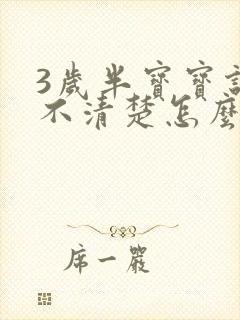 3歲半寶寶說
不清楚怎麼
席一嚴